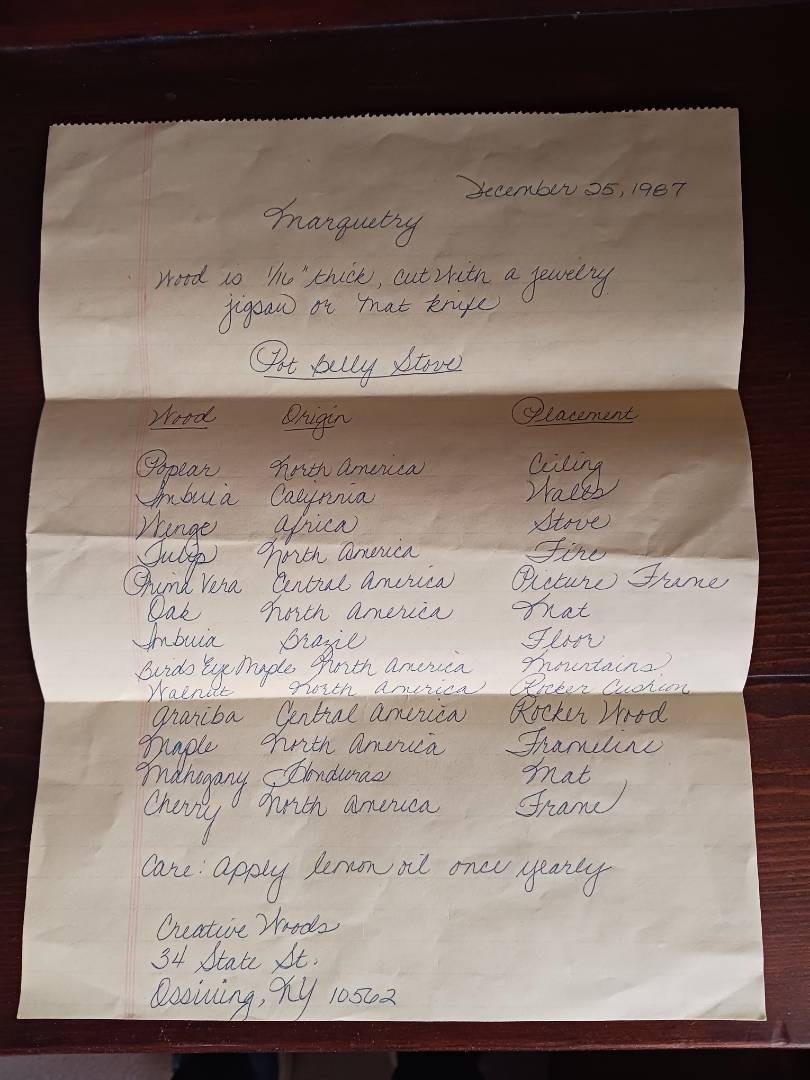 December 25, 1987
Marquetry
Wood is 1/16" thick, cut With a jewelry
jigsaw or mat knife
Pot Belly Stove
Wood Origin Placement
Poplar North America Ceiling
Imbuia California Walls
Wenge Africa Stove
Tulip North America Fire
Prima Vera Central America Picture Frame
Oak North America Mat
Imbuia Brazil Floor
Birds Eye Maple North America Mountains
Walnut North America Rocker Cushion
Arariba Central America Rocker Wood
Maple North America Frameline
Mahogany Honduras Mat
Cherry North America Frame
Care: Apply lemon oil once yearly
Creative Woods
34 State St.
Ossining, NY 10562